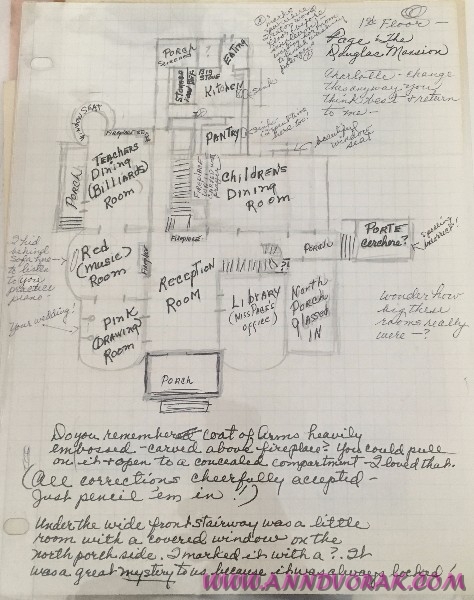 1st Floor —
Page to the
Douglas Mansion
Charlotte - change
this anyway you
think best & return
to me -
PORCH
SCREENED
?
EATING
STORAGE
BIG
STOVE
KITCHEN
Sink
PANTRY
Sink
here too
beautiful
window
seat
WINDOW SEAT
FIREPLACE
PORCH
TEACHERS
Dining
(Billiards)
Room
CHILDREN'S
DINING
ROOM
FIREPLACE
PORTE
cochere?
PORCH
I hid
behind
sofa here
to listen
to you
practice
piano -
Red
(music)
Room
RECEPTION
ROOM
?
LIBRARY
(Miss Page's
office)
North
Porch
glassed
IN
Your wedding!
PINK
(DRAWING)
Room
wonder how
big these
rooms really
were - ?
PORCH
Do you remember coat of arms heavily
embossed - carved above fireplace? You could pull
on it & open to a concealed compartment - I loved that.
(All corrections cheerfully accepted -
Just pencil 'em in!")
Under the wide front stairway was a little
room with a covered window on the
north porch side. I marked it with a ?. It
was a great mystery to us because it was always locked!
WWW.ANNDVORAK.COM